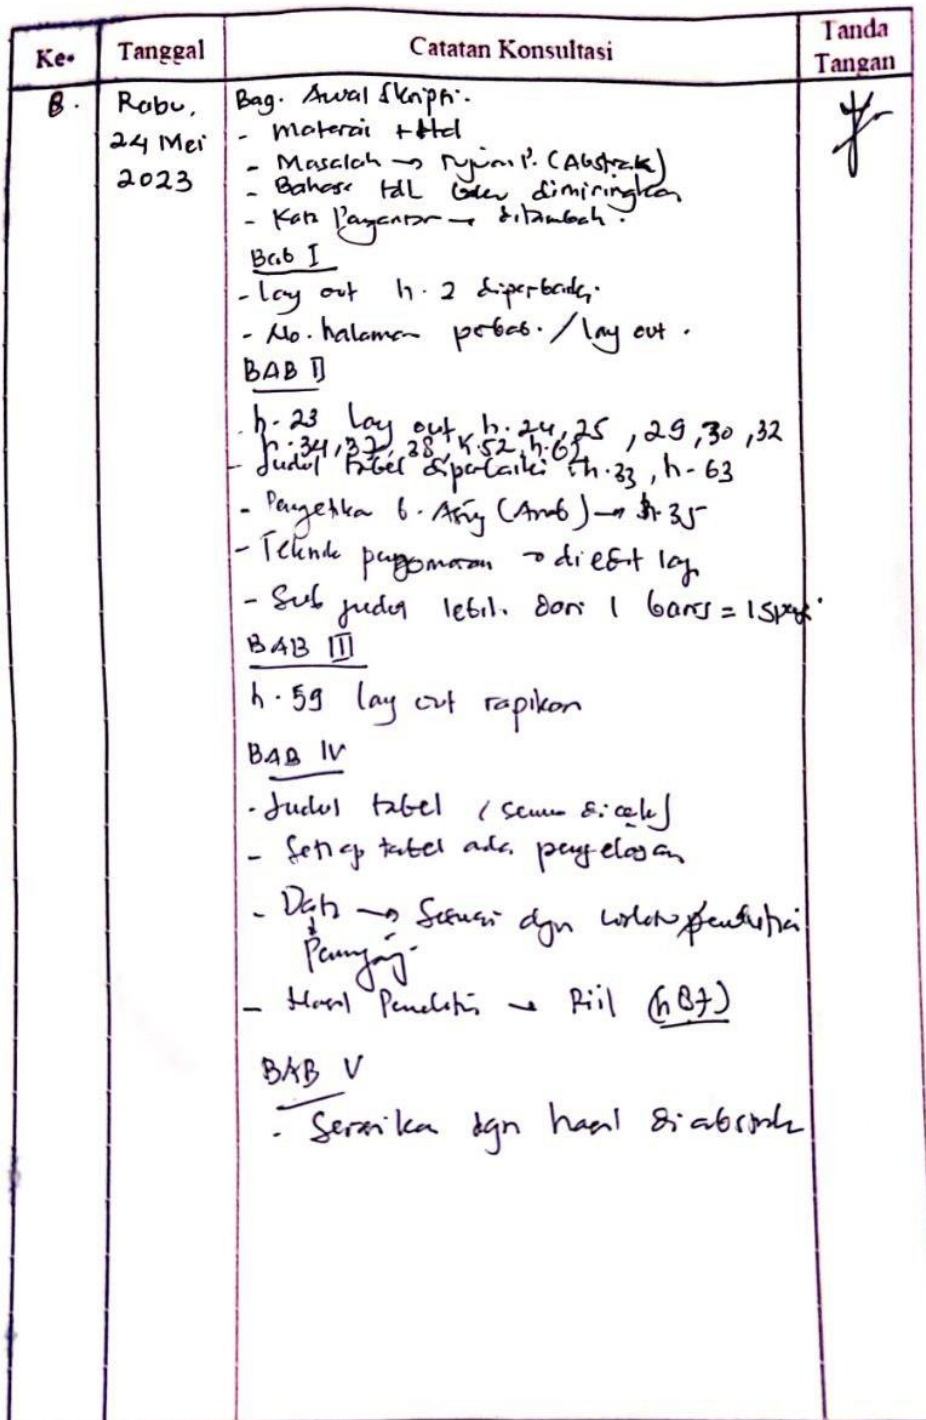 Ke- Tanggal Catatan Konsultasi Tanda Tangan
8. Rabu, 24 Mei 2023
Bag. Awal Skripsi.
- Materai + ttd
- Masalah → Tujuan P. (Abstrak)
- Bahasa tdk dimiringkan
- Kata Pengantar → ditambah.
Bab I
- Lay out h. 2 diperbaiki.
- No. halaman perbab. / lay out.
BAB II
- h. 23 lay out, h. 24, 25, 29, 30, 32
h. 34, 37, 38, h. 52, h. 62
- Judul tabel diperbaiki h. 33, h. 63
- Pengetikan b. Asing (Arab) → h. 35
- Teknik penomoran → diedit lagi
- Sub judul lebih dari 1 baris = 1 spasi
BAB III
h. 59 lay out rapikan
BAB IV
- Judul tabel (semua dicek)
- Setiap tabel ada penjelasan
- Data → Sesuai dgn penelitian
Penunjang
- Hasil Penelitian → Riil (h 87)
BAB V
- Sesuaikan dgn hasil di abstrak